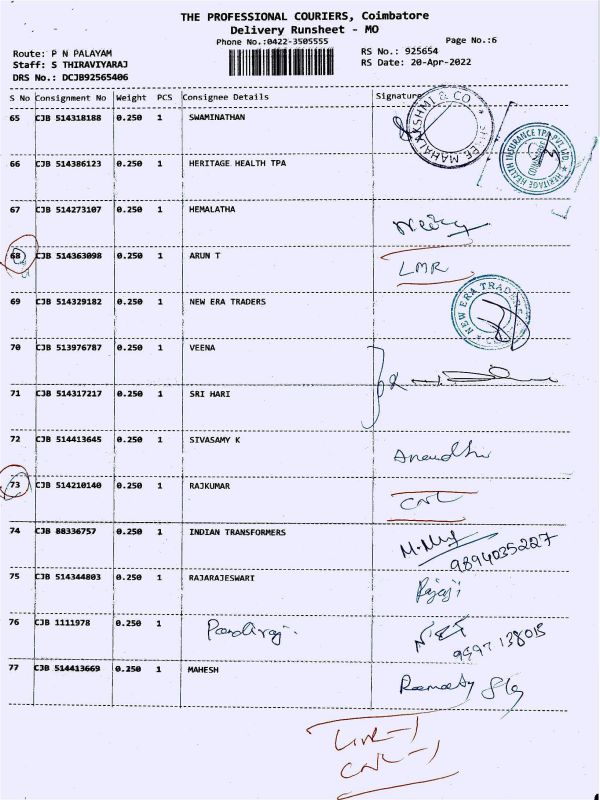 THE PROFESSIONAL COURIERS, Coimbatore
Delivery Runsheet - MO
Phone No.:0422-3505555 Page No.:6
Route: P N PALAYAM RS No.: 925654
Staff: S THIRAVIYARAJ RS Date: 20-Apr-2022
DRS No.: DCJB92565406
S No Consignment No Weight PCS Consignee Details Signature
65 CJB 514318188 0.250 1 SWAMINATHAN
SHREE MAHALAKSHMI & CO.
66 CJB 514386123 0.250 1 HERITAGE HEALTH TPA
HERITAGE HEALTH INSURANCE TPA PVT. LTD.
67 CJB 514273107 0.250 1 HEMALATHA
68 CJB 514363098 0.250 1 ARUN T LMR
69 CJB 514329182 0.250 1 NEW ERA TRADERS
NEW ERA TRADERS
70 CJB 513976787 0.250 1 VEENA
71 CJB 514317217 0.250 1 SRI HARI
72 CJB 514413645 0.250 1 SIVASAMY K
73 CJB 514210140 0.250 1 RAJKUMAR CNL
74 CJB 88336757 0.250 1 INDIAN TRANSFORMERS
9894035227
75 CJB 514344803 0.250 1 RAJARAJESWARI Rajaji
76 CJB 1111978 0.250 1
77 CJB 514413669 0.250 1 MAHESH
CNL-1